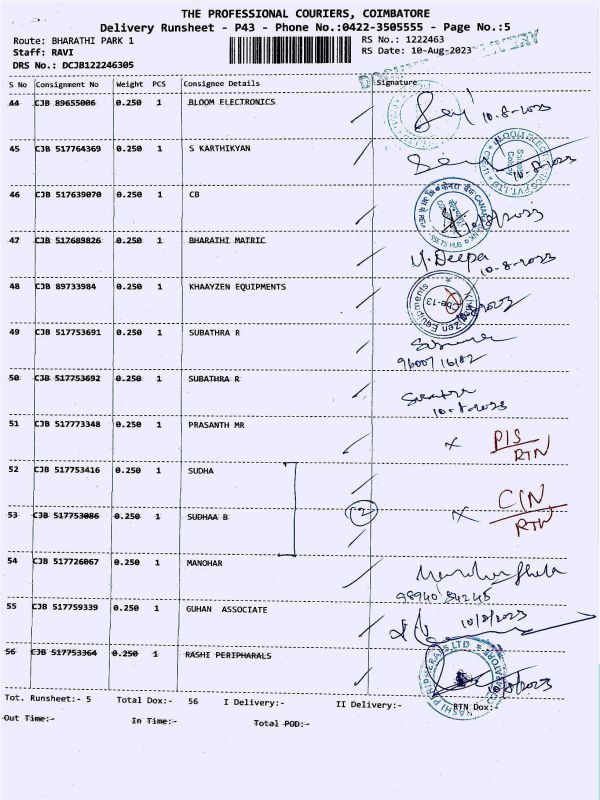 THE PROFESSIONAL COURIERS, COIMBATORE
Delivery Runsheet - P43 - Phone No.:0422-3505555 - Page No.:5
Route: BHARATHI PARK 1
RS No.: 1222463
Staff: RAVI
RS Date: 10-Aug-2023
DRS No.: DCJB122246305
S No Consignment No Weight PCS Consignee Details Signature
44 CJB 89655006 0.250 1 BLOOM ELECTRONICS 10-8-2023
45 CJB 517764369 0.250 1 S KARTHIKYAN 10-8-2023
46 CJB 517639070 0.250 1 CB
47 CJB 517689826 0.250 1 BHARATHI MATRIC Y. Deepa
10-8-2023
48 CJB 89733984 0.250 1 KHAAYZEN EQUIPMENTS Cbe-13
49 CJB 517753691 0.250 1 SUBATHRA R
96007 16182
50 CJB 517753692 0.250 1 SUBATHRA R
10-8-2023
51 CJB 517773348 0.250 1 PRASANTH MR x PIS
RTN
52 CJB 517753416 0.250 1 SUDHA CIN
53 CJB 517753086 0.250 1 SUDHAA B 2 x RTN
54 CJB 517726067 0.250 1 MANOHAR
98940 54245
55 CJB 517759339 0.250 1 GUHAN ASSOCIATE 10/8/2023
56 CJB 517753364 0.250 1 RASHI PERIPHARALS 10/8/2023
Tot. Runsheet:- 5 Total Dox:- 56 I Delivery:- II Delivery:- RTN Dox:-
Out Time:- In Time:- Total POD:-